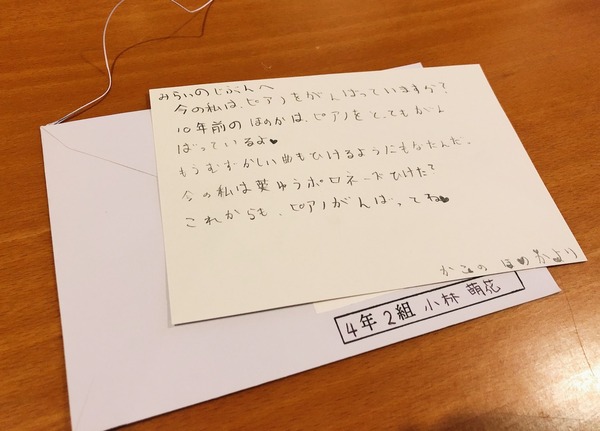 みらいのじぶんへ
今の私は、ピアノをがんばっていますか？
10年前のほのかは、ピアノをとってもがん
ばっているよ♥
もうむずかしい曲もひけるようにもなたんだ。
今の私は英ゆうポロネーズひけた？
これからも、ピアノがんばってね♥
かこの ほのかより
4年2組 小林 萌花